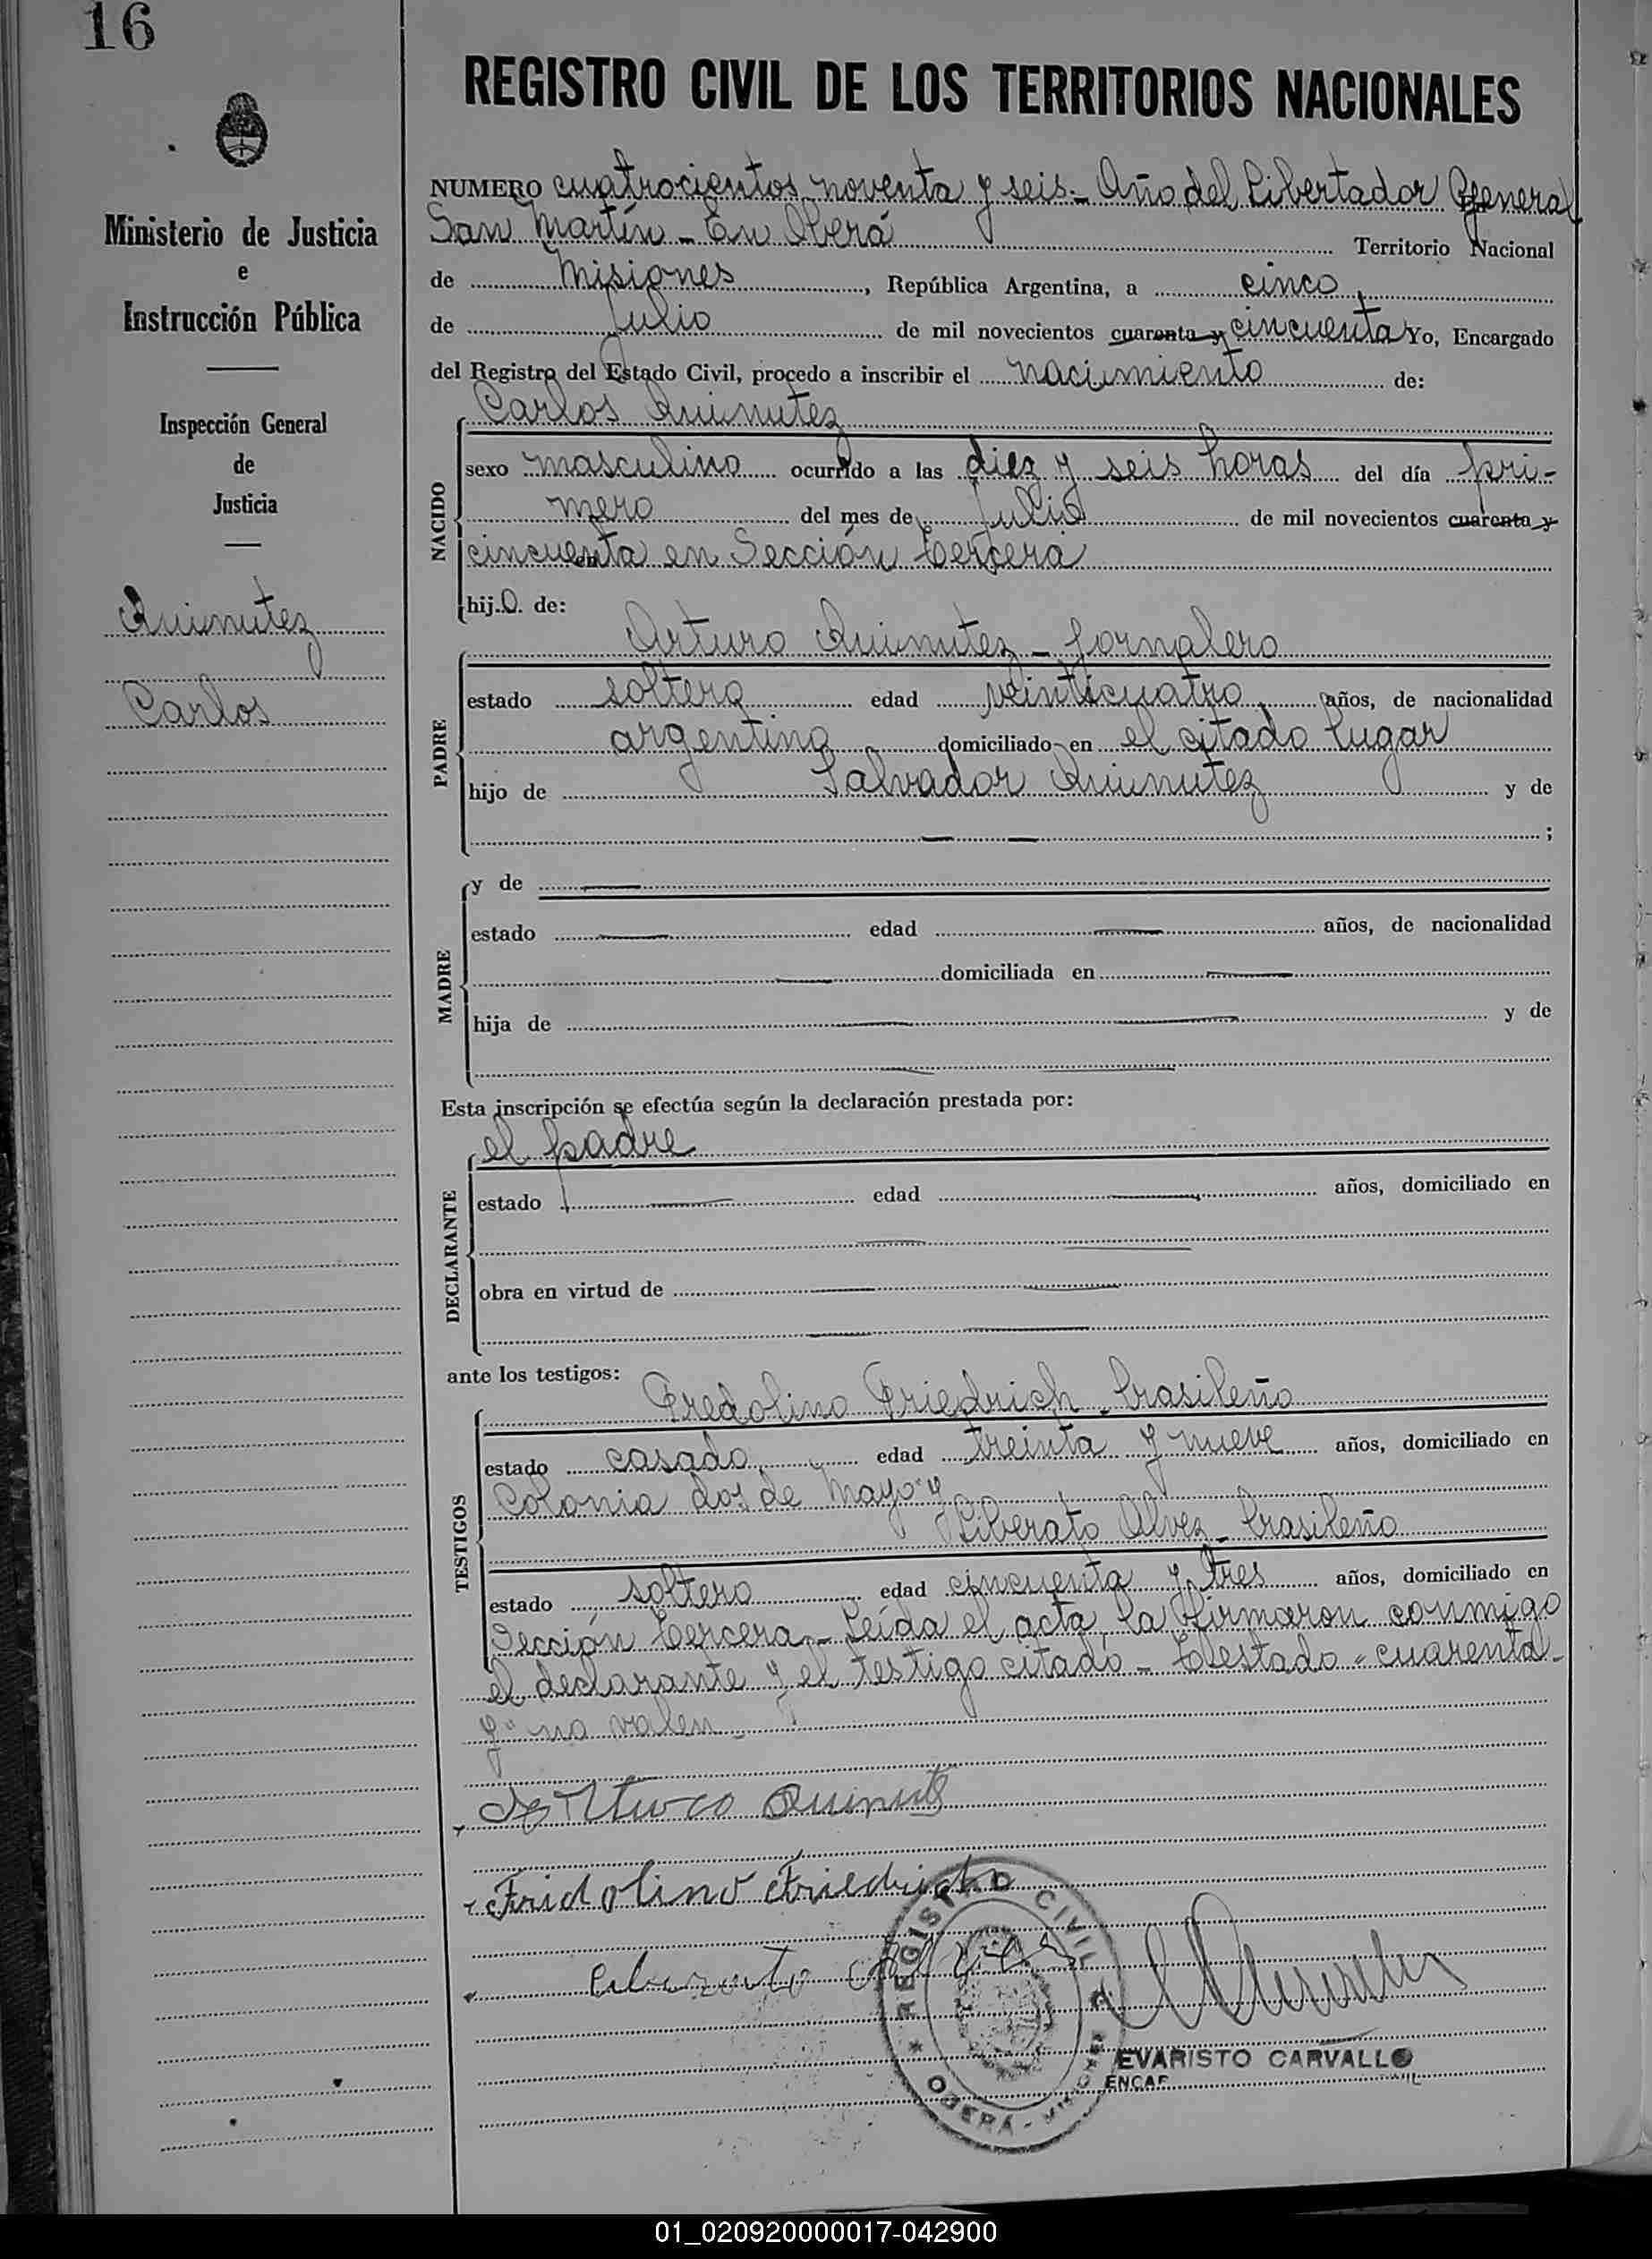 16
REGISTRO CIVIL DE LOS TERRITORIOS NACIONALES
Ministerio de Justicia
e
Instrucción Pública
Inspección General
de
Justicia
Quiunutez
Carlos
NUMERO cuatrocientos noventa y seis.- Año del Libertador General
San Martín - En Oberá Territorio Nacional
de Misiones, República Argentina, a cinco
de Julio de mil novecientos cuarenta y cincuenta Yo, Encargado
del Registro del Estado Civil, procedo a inscribir el nacimiento de:
NACIDO
Carlos Quiunutez
sexo masculino ocurrido a las diez y seis horas del día pri-
mero del mes de Julio de mil novecientos cuarenta y
cincuenta en Sección tercera
hijo de:
PADRE
Arturo Quiunutez - jornalero
estado soltero edad veinticuatro, años, de nacionalidad
argentino domiciliado en el citado lugar
hijo de Salvador Quiunutez y de
— — ;
MADRE
y de —
estado — edad — años, de nacionalidad
— domiciliada en —
hija de — — y de
— —
Esta inscripción se efectúa según la declaración prestada por:
DECLARANTE
el padre
estado — edad — años, domiciliado en
— —
obra en virtud de — —
— —
ante los testigos:
TESTIGOS
Fredolino Friedrich - brasileño
estado casado, edad treinta y nueve años, domiciliado en
Colonia dos de Mayo y
Liberato Alvez - brasileño
estado soltero edad cincuenta y tres años, domiciliado en
Sección tercera.- Leída el acta, la firmaron conmigo
el declarante y el testigo citado - Testado "cuarenta
y" no valen.-
Arturo
Fridolino Friedrich
REGISTRO CIVIL
OBERÁ - MISIONES
EVARISTO CARVALLO
ENCAR
01_020920000017-042900